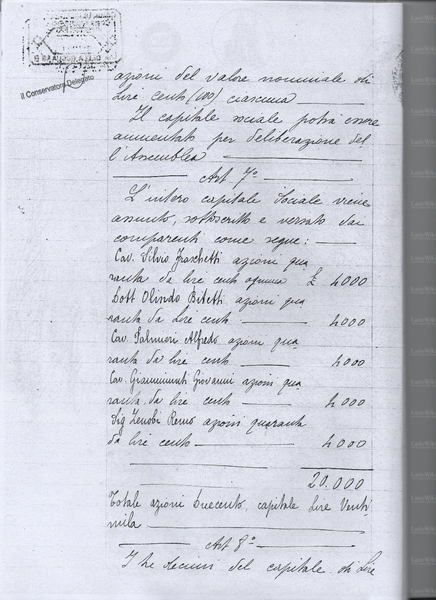 Il Conservatore Delegato
azioni del valore nominale di
Lire cento (100) ciascuna
Il capitale sociale potrà essere
aumentato per deliberazione del
l'Assemblea
Art 7º
L'intero capitale Sociale viene
assunto, sottoscritto e versato dai
comparenti come segue:
Cav. Silvio Fraschetti azioni qua
ranta da lire cento ognuna £ 4000
Dott Olindo Bitetti azioni qua
ranta da Lire cento 4000
Cav. Palmieri Alfredo azioni qua
ranta da lire cento 4000
Cav. Giammiunti Giovanni azioni qua
ranta da lire cento 4000
Sig Zenobi Remo azioni quaranta
da lire cento 4000
20.000
Totale azioni Duecento, capitale Lire Venti
mila
Art 8º
I tre decimi del capitale di Lire